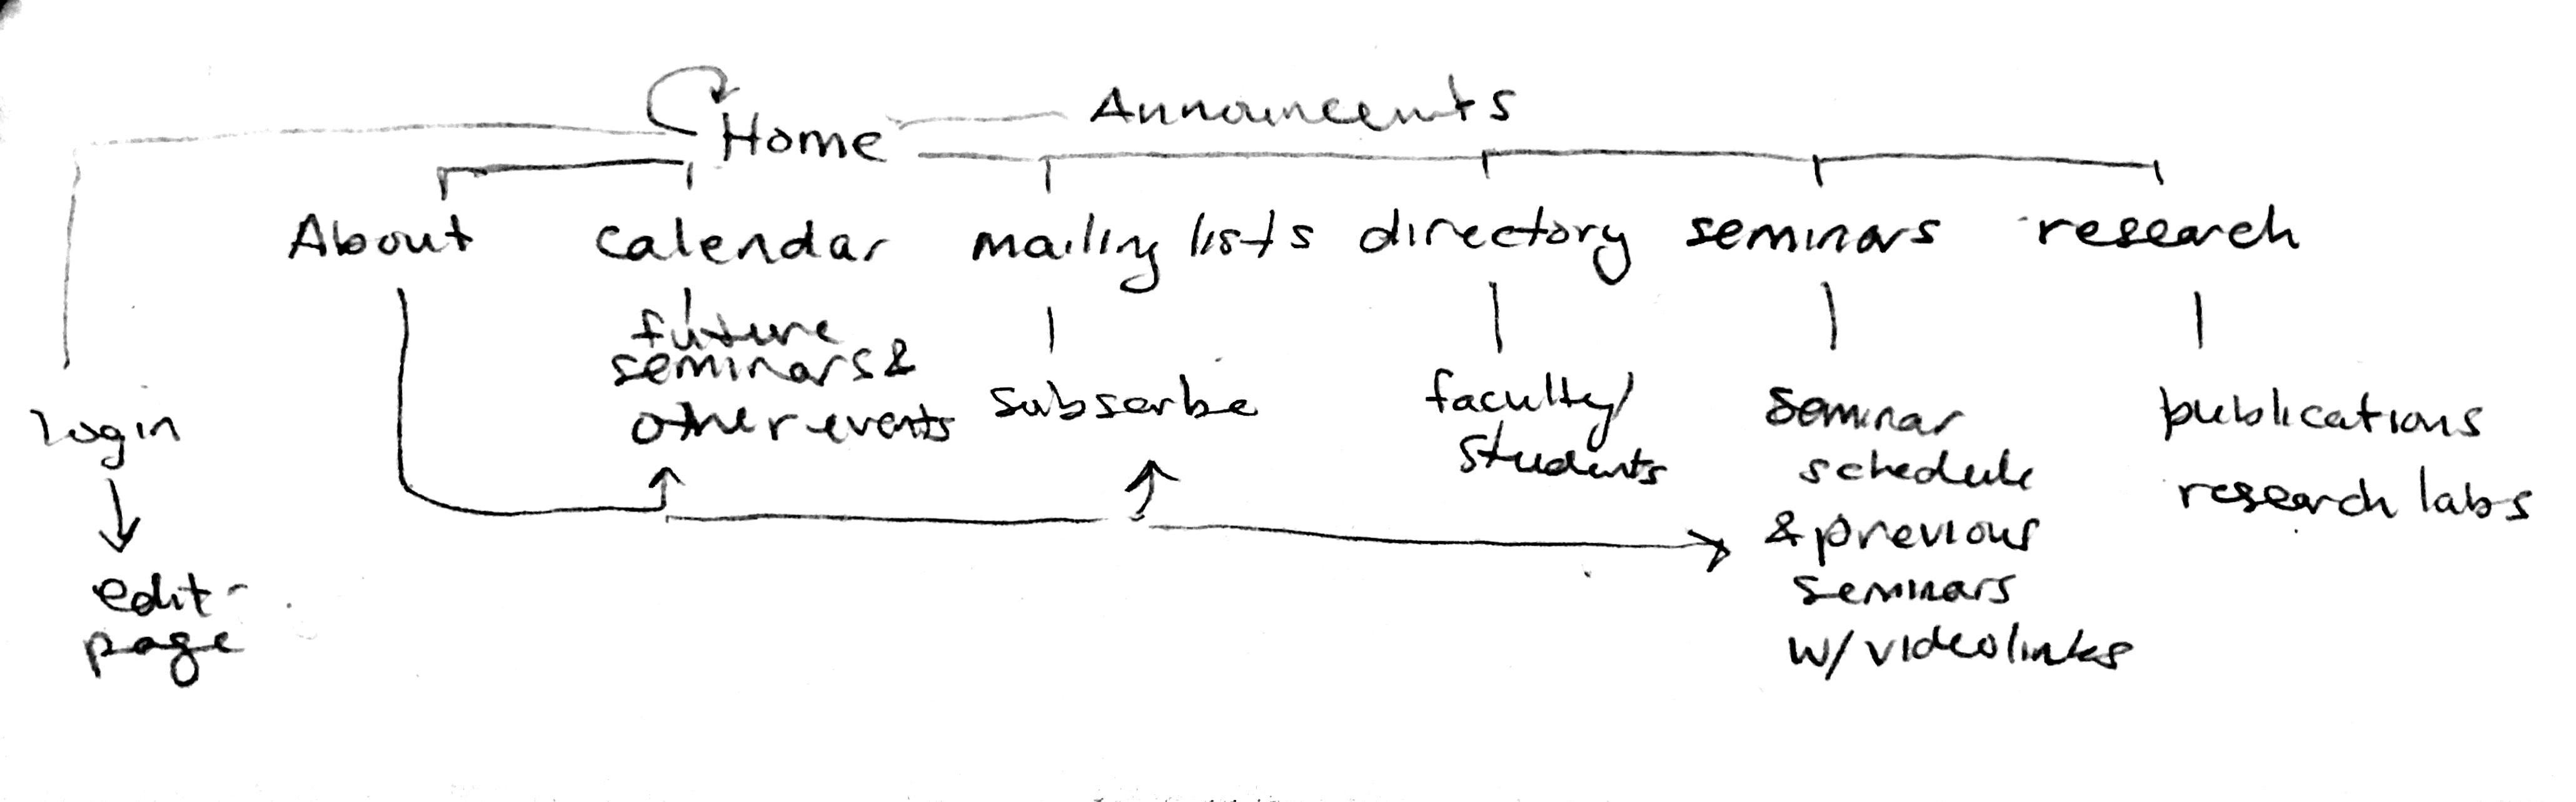 Announcemts
Home
About calendar mailing lists directory seminars research
future
seminars &
other events
subscribe
faculty/
students
seminar
schedule
& previous
seminars
w/ videolinks
publications
research labs
login
edit-
page